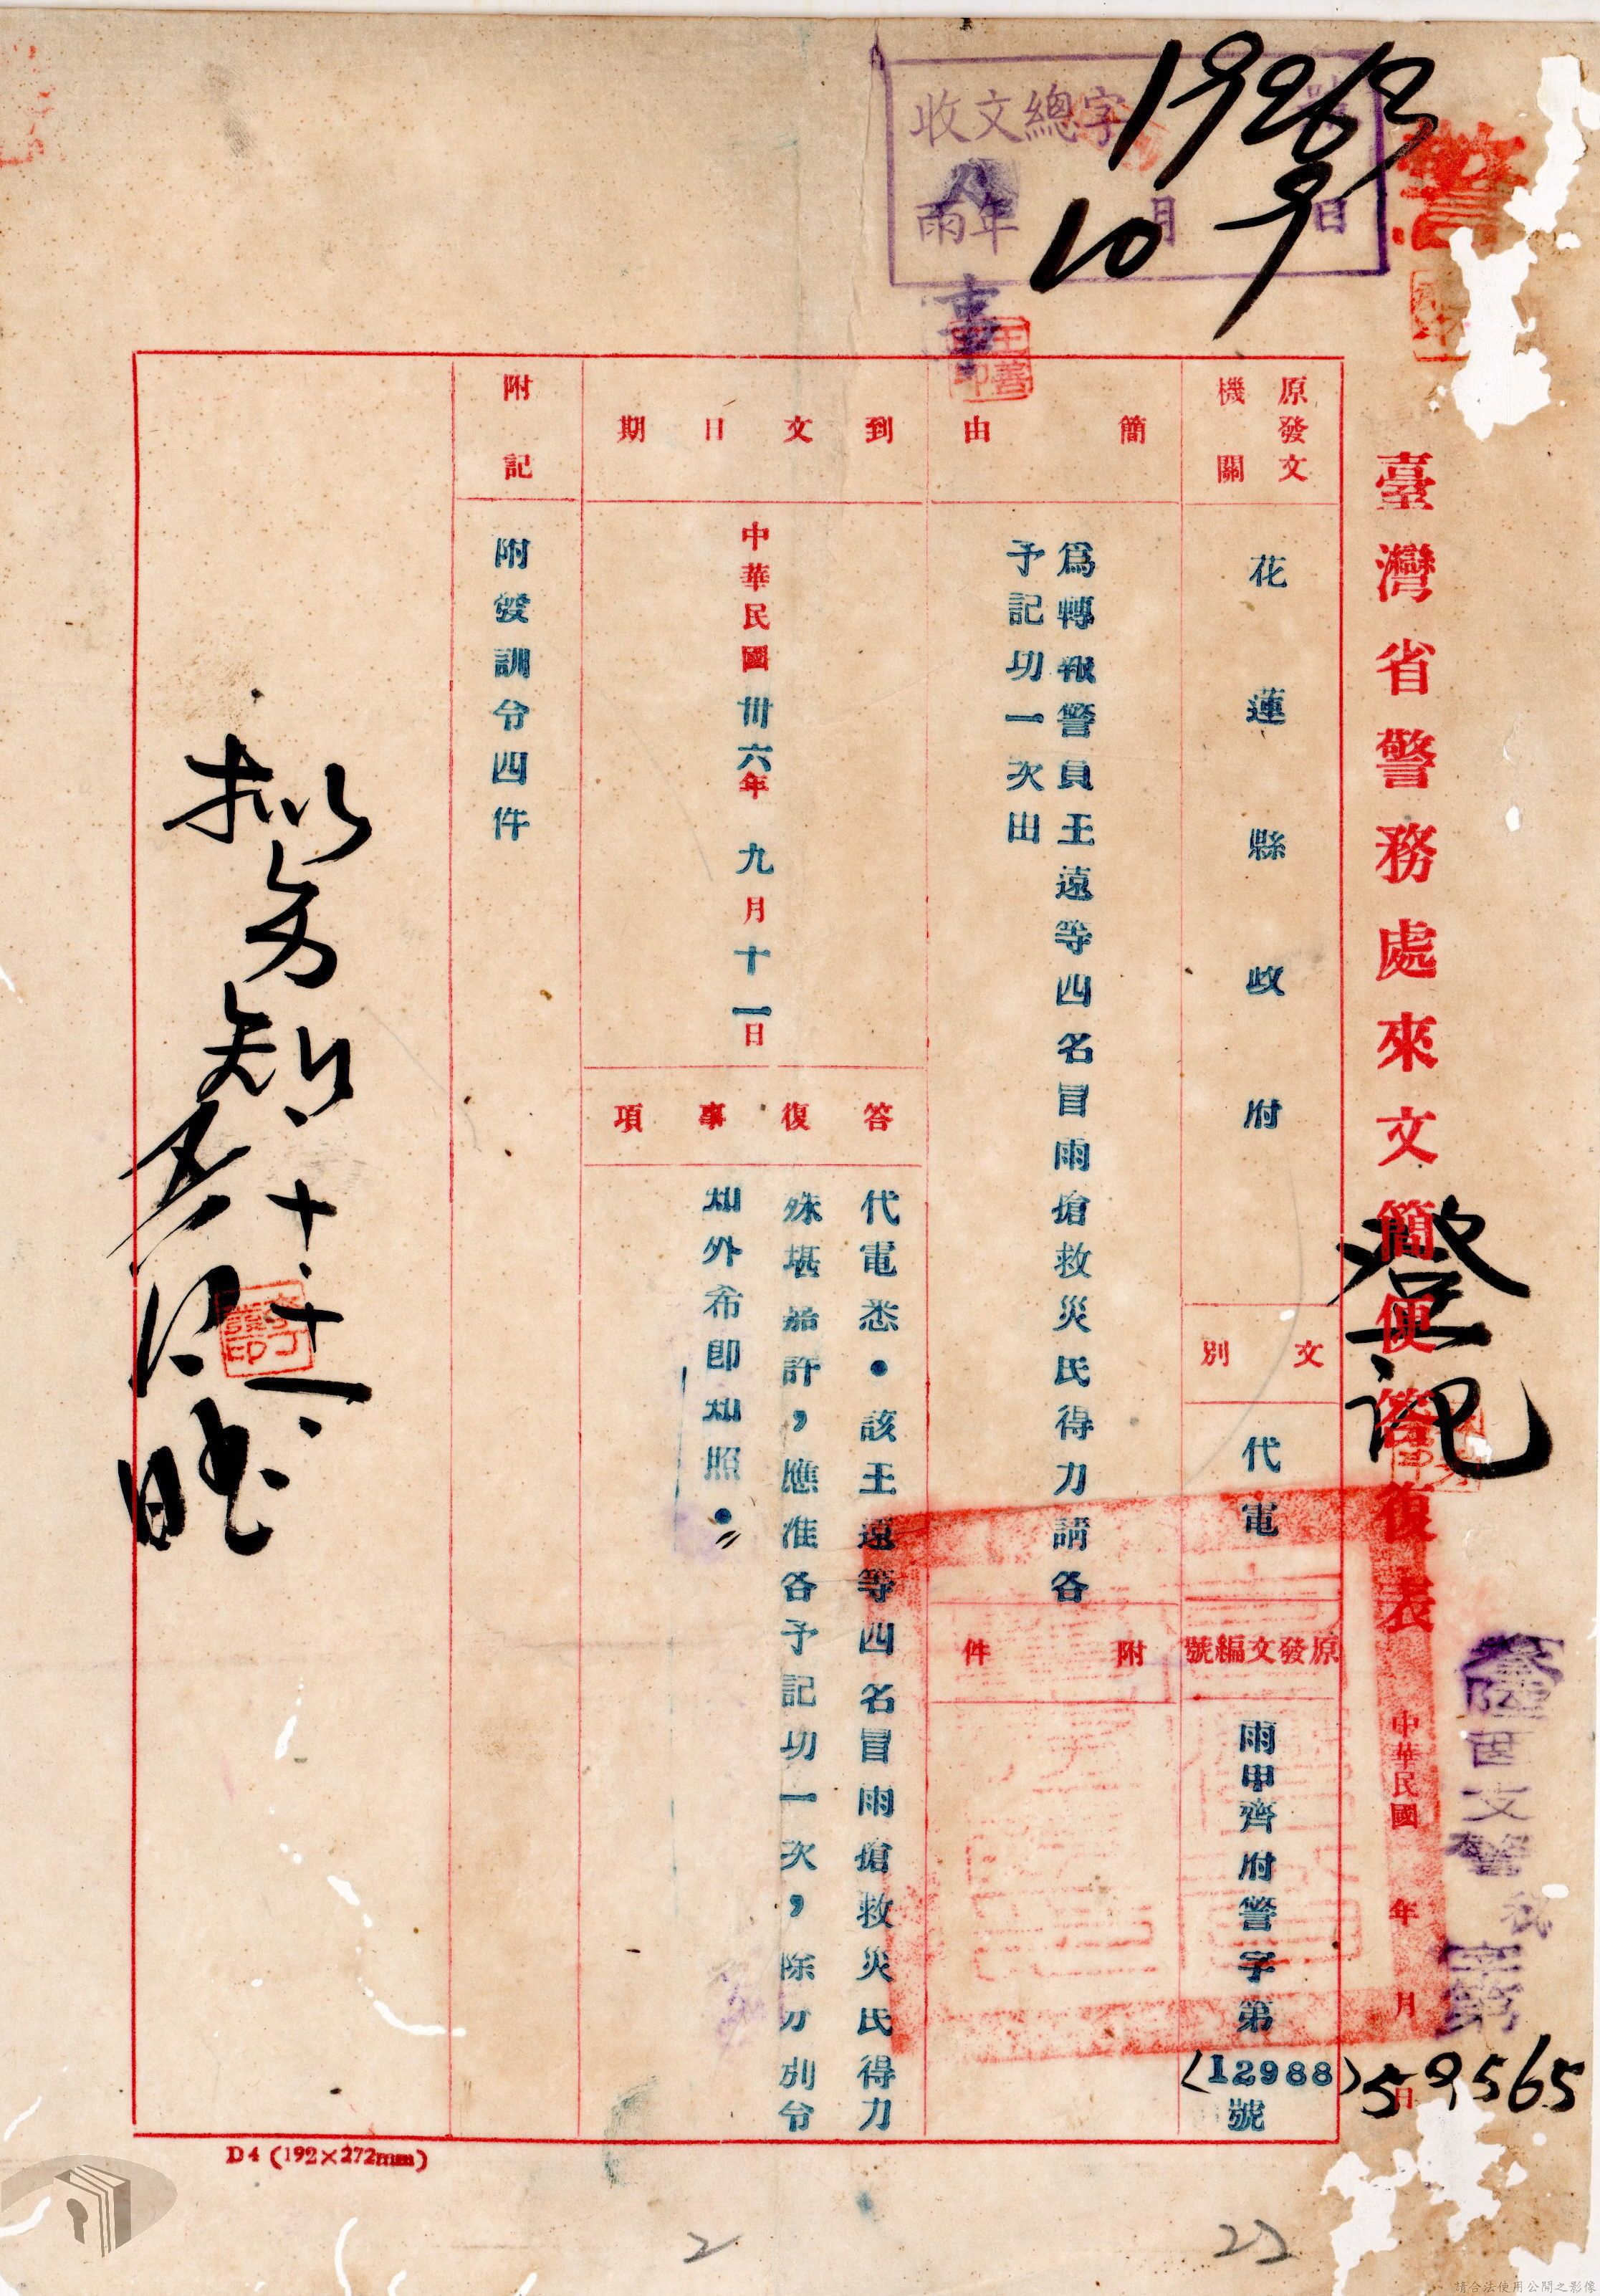 收文總字 19263 號
雨年 10 月 9 日
警
臺灣省警務處來文簡便答復表
登記
中華民國 年 月 日
字第
59565
原發文機關
花蓮縣政府
文別
代電
原發文編號
雨甲齊府警字第(12988)號
簡由
為轉報警員王遠等四名冒雨搶救災民得力請各
予記功一次由
附件
到文日期
中華民國卅六年九月十一日
答復事項
代電悉・該王遠等四名冒雨搶救災民得力
殊堪嘉許,應准各予記功一次,除分別令
知外希即知照・
附記
附發訓令四件
D4 (192×272mm)
2
22
請合法使用公開之影像